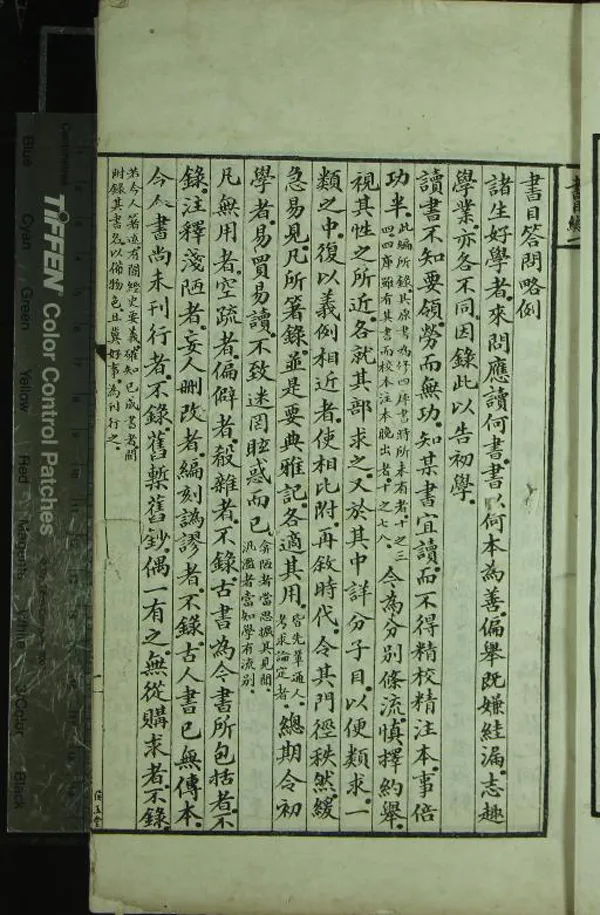 書目答問略例
諸生好學者來問應讀何書書以何本為善偏舉既嫌絓漏志趣
學業亦各不同因錄此以告初學
讀書不知要領勞而無功知某書宜讀而不得精校精注本事倍
功半此編所錄其原書為修四庫書時所未有者十之三四四庫雖有其書而校本注本晚出者十之七八今為分別條流慎擇約舉
視其性之所近各就其部求之又於其中詳分子目以便類求一
類之中復以義例相近者使相比附再敘時代令其門徑秩然緩
急易見凡所著錄並是要典雅記各適其用皆先輩通人考求論定者總期令初
學者易買易讀不致迷罔眩惑而已弇陋者當思擴其見聞汎濫者當知學有流別
凡無用者空疏者偏僻者殽雜者不錄古書為今書所包括者不
錄注釋淺陋者妄人刪改者編刻譌謬者不錄古人書已無傳本
今人書尚未刊行者不錄舊槧舊鈔偶一有之無從購求者不錄
若今人著述有關經史要義確知已成書者間
附錄其書名以備物色且冀好事為刊行之
TIFFEN Color Control Patches
Blue
Cyan
Green
Yellow
Red
Magenta
White
3/Color
Black